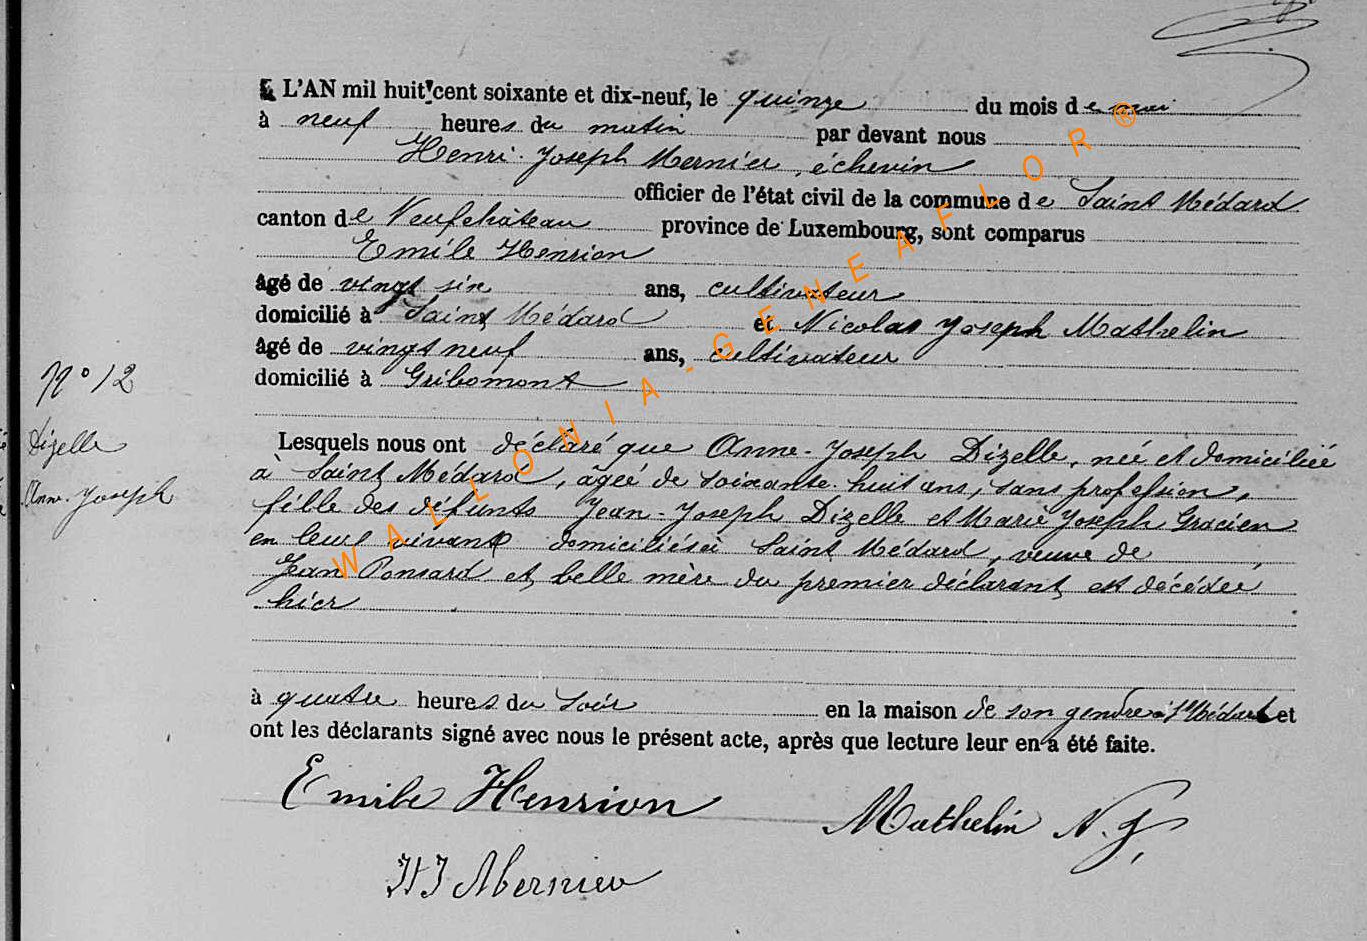 L'AN mil huit cent soixante et dix-neuf, le quinze du mois de mai
à neuf heures du matin par devant nous
Henri-Joseph Mernier, échevin
officier de l'état civil de la commune de Saint Médard
canton de Neufchâteau province de Luxembourg, sont comparus
Emile Henrion
âgé de vingt six ans, cultivateur
domicilié à Saint Médard et Nicolas Joseph Mathelin
âgé de vingt neuf ans, cultivateur
domicilié à Gribomont
N° 12
Dizelle
Anne-Joseph
Lesquels nous ont déclaré que Anne-Joseph Dizelle, née et domiciliée
à Saint Médard, âgée de soixante-huit ans, sans profession,
fille des défunts Jean-Joseph Dizelle et Marie Joseph Gracien
en leur vivant domiciliés à Saint Médard, veuve de
Jean Ponsard et belle mère du premier déclarant est décédée
hier
à quatre heures du soir en la maison de son gendre à St Médard et
ont les déclarants signé avec nous le présent acte, après que lecture leur en a été faite.
Emile Henrion
Mathelin N. J.
HJ Mernier
WALLONIA-GENEAFLOR®